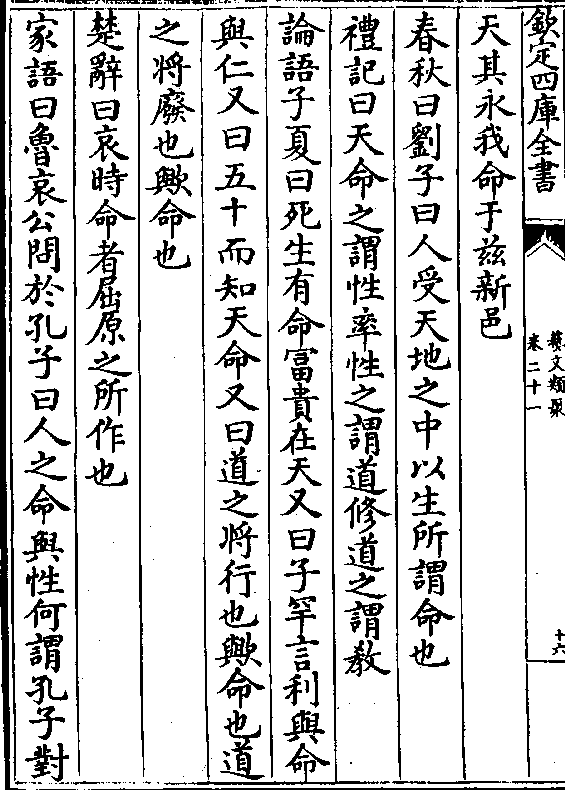 欽定四庫全書
藝文類聚
卷二十一
十六
天其永我命于兹新邑
春秋曰劉子曰人受天地之中以生所謂命也
禮記曰天命之謂性率性之謂道修道之謂教
論語子夏曰死生有命富貴在天又曰子罕言利與命
與仁又曰五十而知天命又曰道之將行也歟命也道
之將廢也歟命也
楚辭曰哀時命者屈原之所作也
家語曰魯哀公問於孔子曰人之命與性何謂孔子對